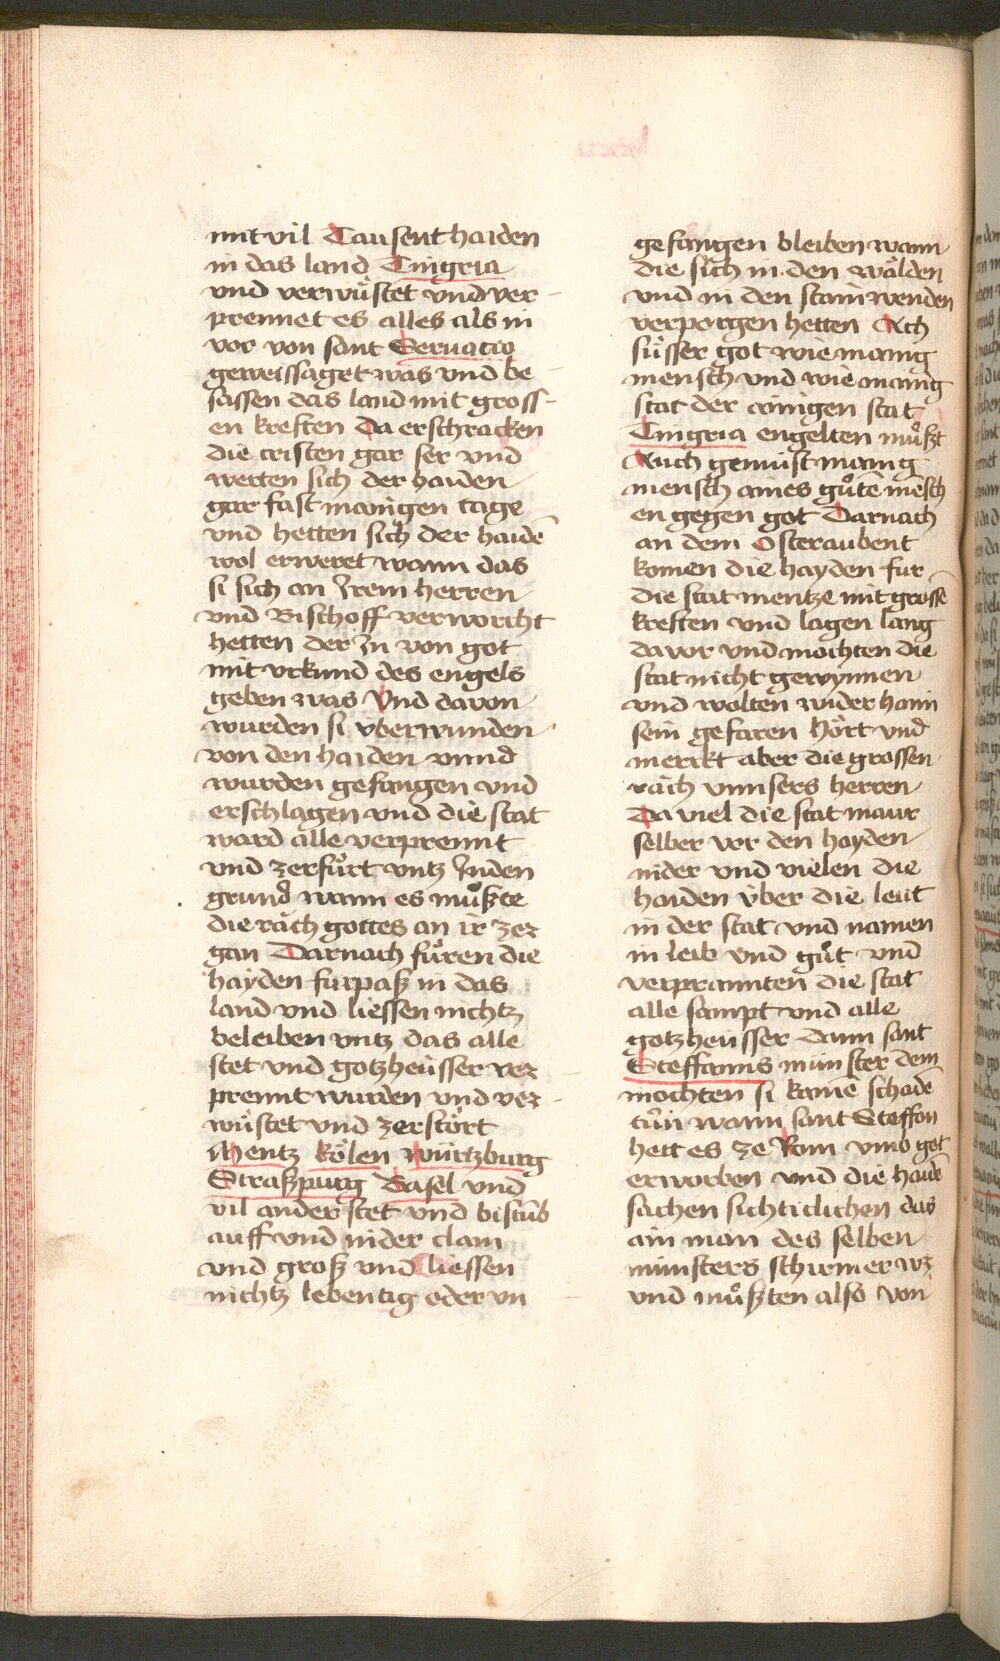 mit vil Tausent haiden
in das land Tingria
und verwüstet und ver-
prennet es alles als in
vor von sant Servacio
geweissaget was und be-
sassen das land mit gross-
en kreften Da erschracken
die cristen gar ser und
werten sich der haiden
gar fast manigen tage
und hetten sich der haidē
wol erweret wann das
si sich an Irem herren
und Bischoff verworcht
hetten der In von got
mit urkund des engels
geben was Und davon
wurden si uberwunden
von den haiden unnd
wurden gefangen und
erschlagen und die stat
ward alle verprennt
und zerfůrt untz Inden
grund wann es můßte
die räch gottes an ir zer
gan Darnach fůren die
hayden furpaß in das
land und liessen nichtz
beleiben untz das alle
stet und gotzheüsser ver
prennt wurden und ver-
wüstet und zerstört
Mentz kölen würtzburg
Straßpurg Basel und
vil ander stet und bistūb
auff und nider clain
und groß und liessen
nichtz lebentig oder un
gefangen bleiben wann
die sich in den wälden
und in den stainwenden
verporgen hetten Ach
süsser got wie manig
mensch und wie manig
stat der ainigen stat
Tingria engelten můßt
Auch genüst manig
mensch aines gůte mēsch
en gegen got Darnach
an dem Osteraubent
komen die hayden fur
die stat mentze mit grossē
kreften und lagen lang
davor und mochten die
stat nicht gewynnen
und wolten wider haim
sein gefaren Hört und
merckt aber die grossen
räch unnsers herren
Da viel die stat maur
selber vor den hayden
nider und vielen die
haiden über die leüt
in der stat und namen
in leib und gůt und
verprannten die stat
alle sampt und alle
gotzheüsser dann sant
Steffanns münster dem
mochten si kainē schadē
tůn wann sant Steffan
hett es ze Rom umb got
erworben und die haidē
sachen sichticlichen das
ain man des selben
münsters schirmer wz
und můßten also von